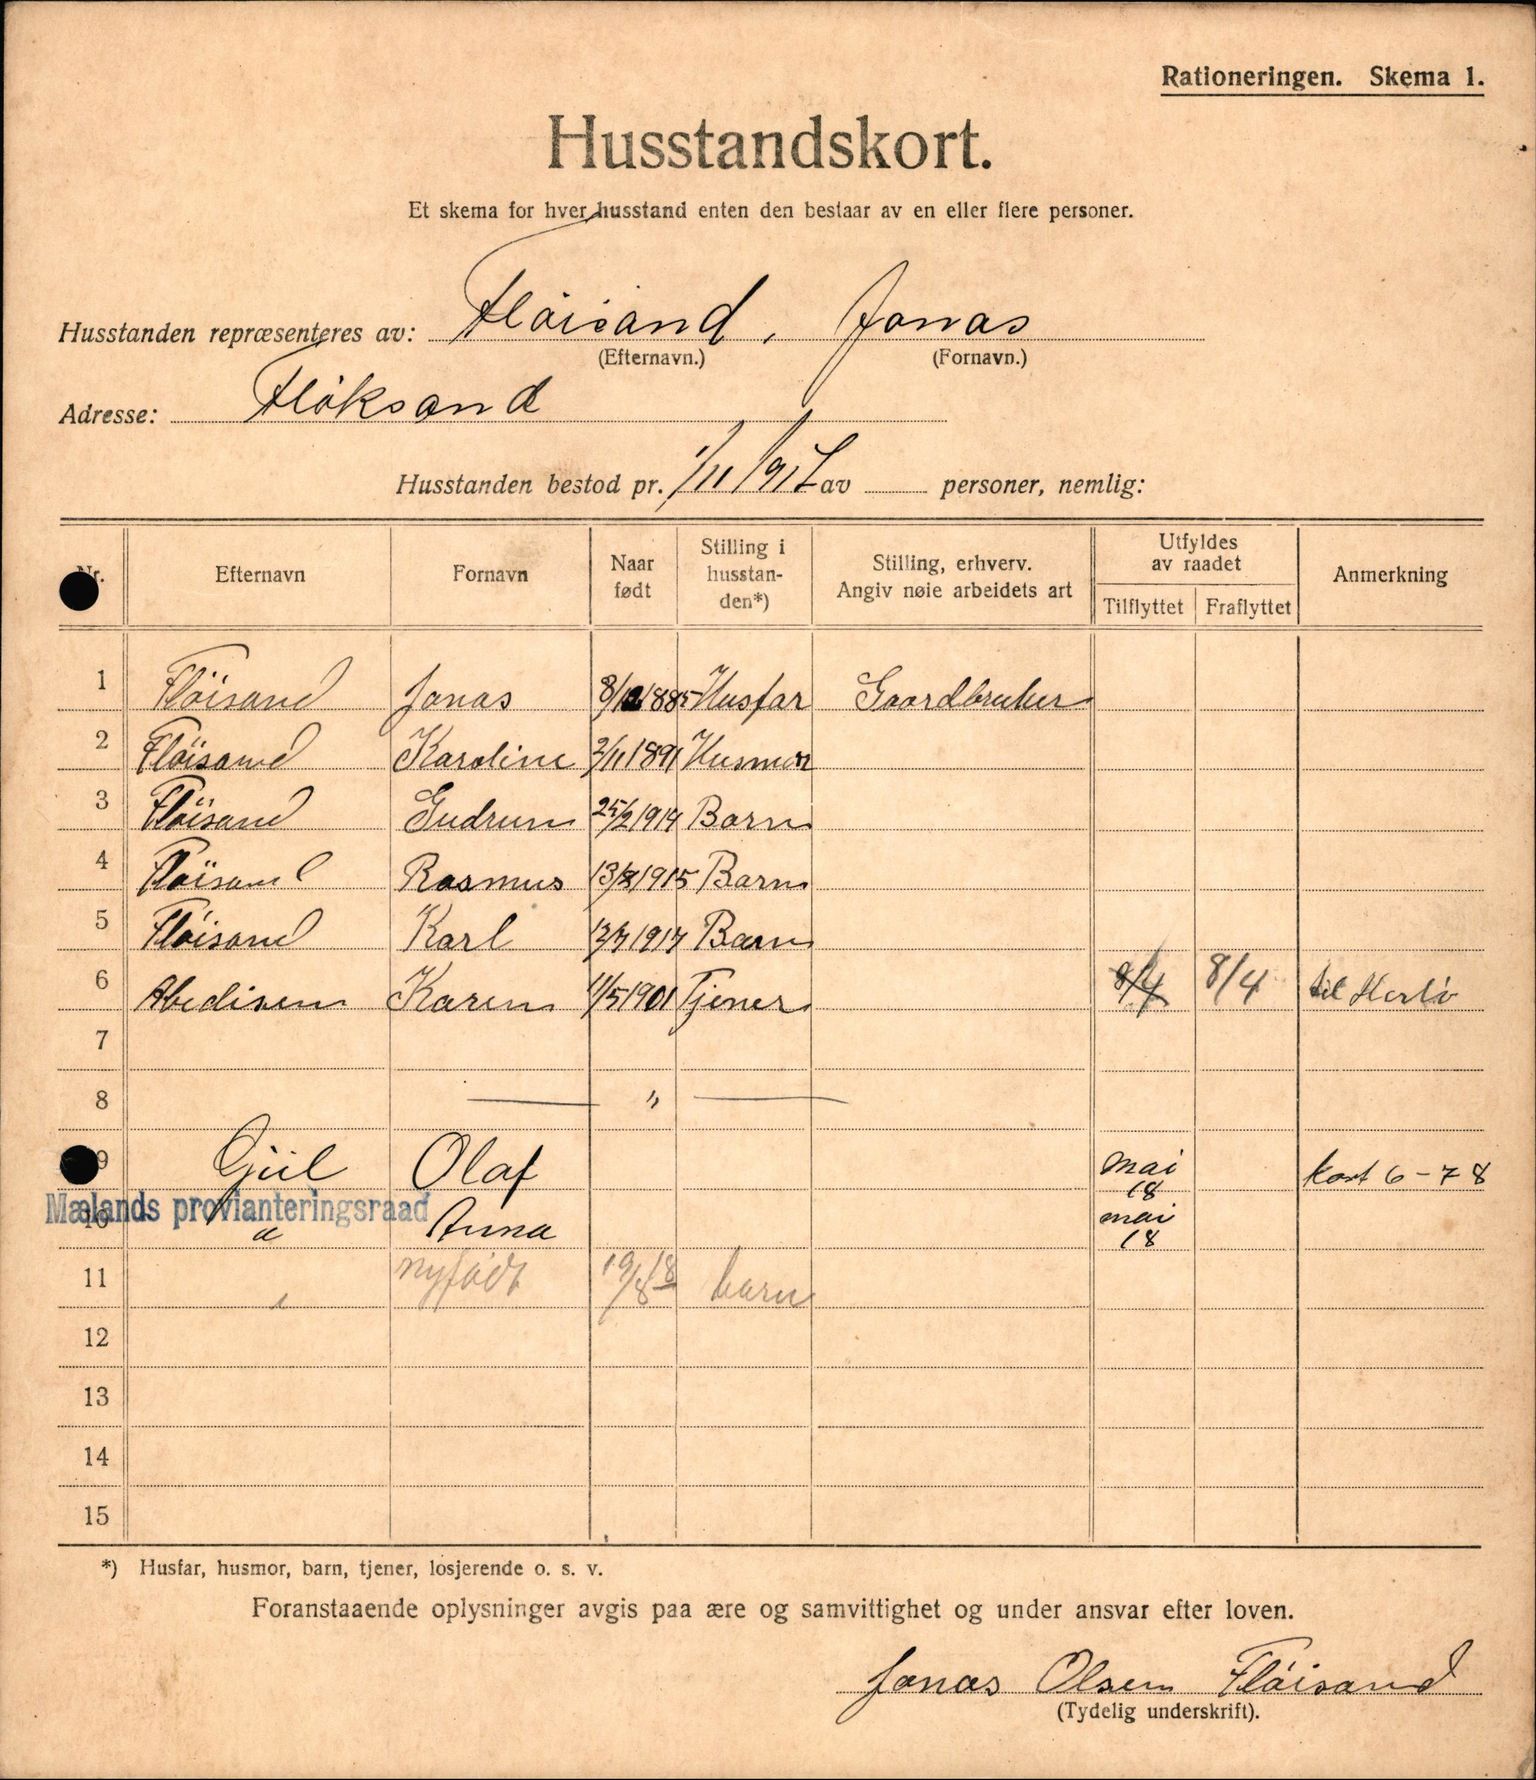 Rationeringen. Skema 1.
Husstandskort.
Et skema for hver husstand enten den bestaar av en eller flere personer.
Husstanden repræsenteres av: Fløisand, Jonas
(Efternavn.) (Fornavn.)
Adresse: Fløksand
Husstanden bestod pr. 1/11 1917 av personer, nemlig:
Nr. Efternavn Fornavn Naar født Stilling i husstanden*) Stilling, erhverv. Angiv nøie arbeidets art Utfyldes av raadet Tilflyttet Fraflyttet Anmerkning
1 Fløisand Jonas 8/12 1885 Husfar Gaardbruker
2 Fløisand Karoline 2/11 1891 Husmor
3 Fløisand Gudrun 25/2 1914 Barn
4 Fløisand Rasmus 13/8 1915 Barn
5 Fløisand Karl 1917 Barn
6 Abedisen Karen 11/5 1901 Tjener 8/4 8/4 til Herlø
7
8 "
9 Olaf mai 18 kort 6-78
Mælands provianteringsraad
10 Anna mai 18
11 nyfødt 19/8 18 barn
12
13
14
15
*) Husfar, husmor, barn, tjener, losjerende o. s. v.
Foranstaaende oplysninger avgis paa ære og samvittighet og under ansvar efter loven.
Jonas Olsen Fløisand
(Tydelig underskrift).